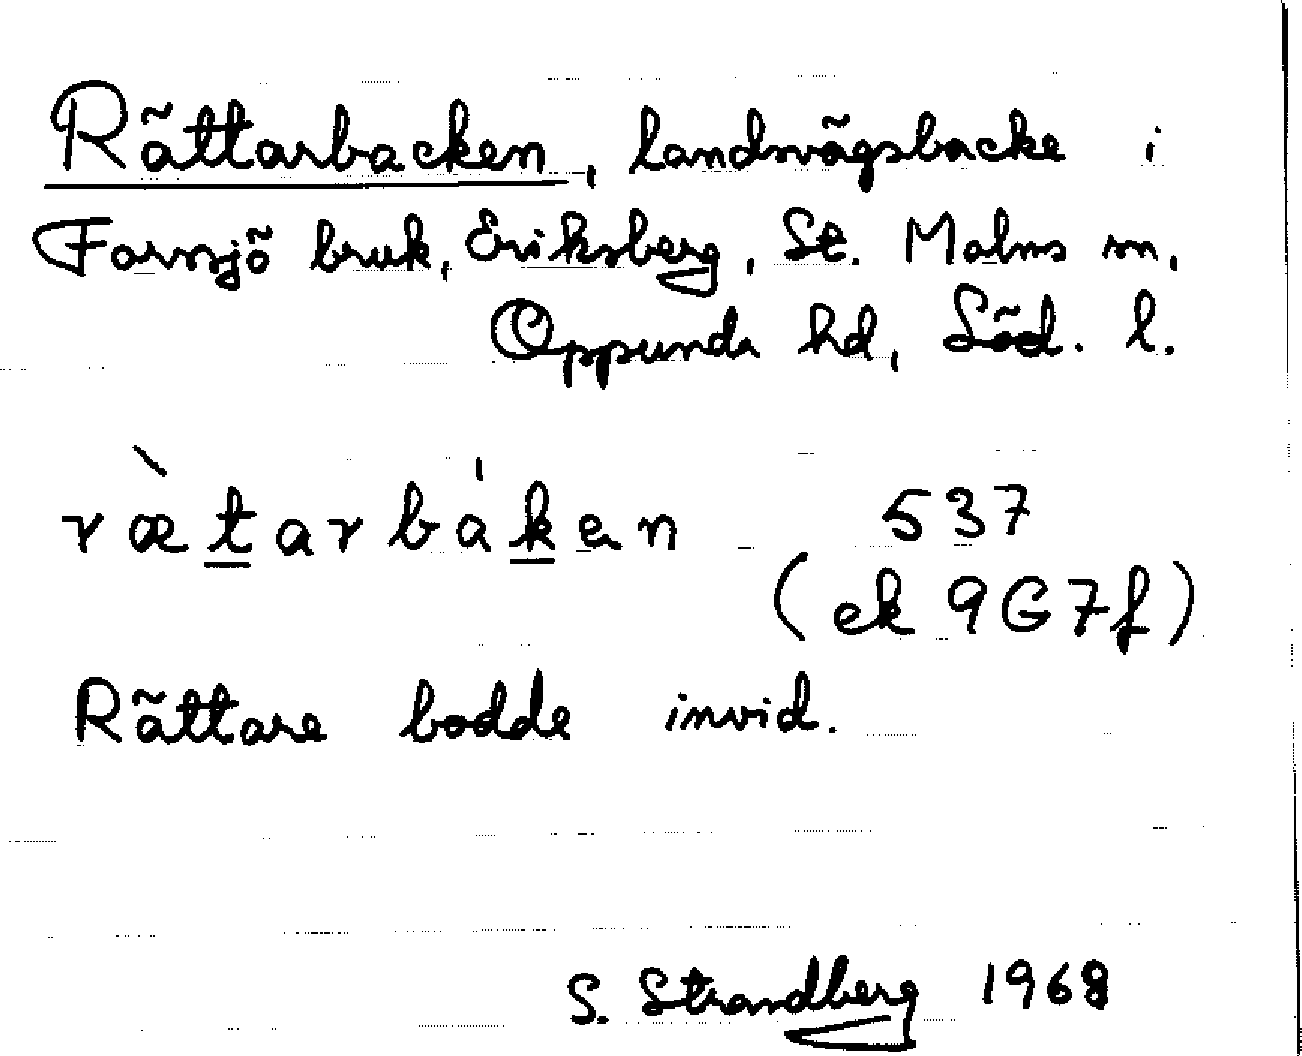 Rättarbacken, landsvägsbacke i
Forssjö bruk, Eriksberg, St. Malms sn,
Oppunda hd, Söd. l.
ræ̀tarbákan 537
(ek 9G7f)
Rättare bodde invid.
S. Strandberg 1968